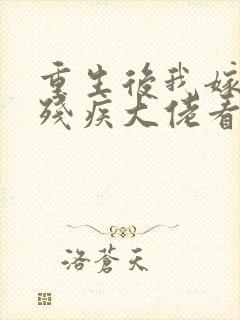 重生後我嫁
殘疾大佬看
洛蒼天